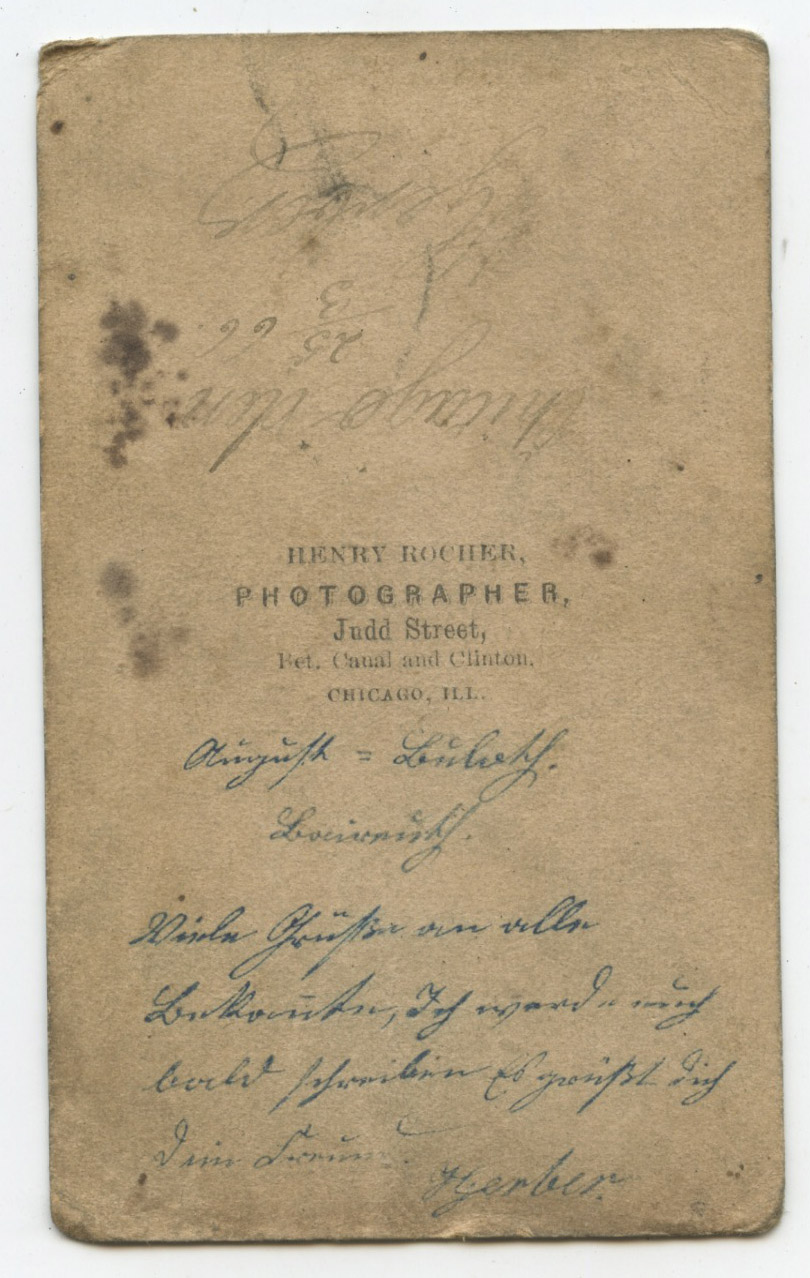 Chicago den
25/3 66.
HENRY ROCHER,
PHOTOGRAPHER,
Judd Street,
Bet. Canal and Clinton.
CHICAGO, ILL.
August =
Baireuth.
Viele Grüße an alle
Bekan̄te, Ich werde euch
bald schreiben Es grüßt dich
Dein Freund.
Gerber.